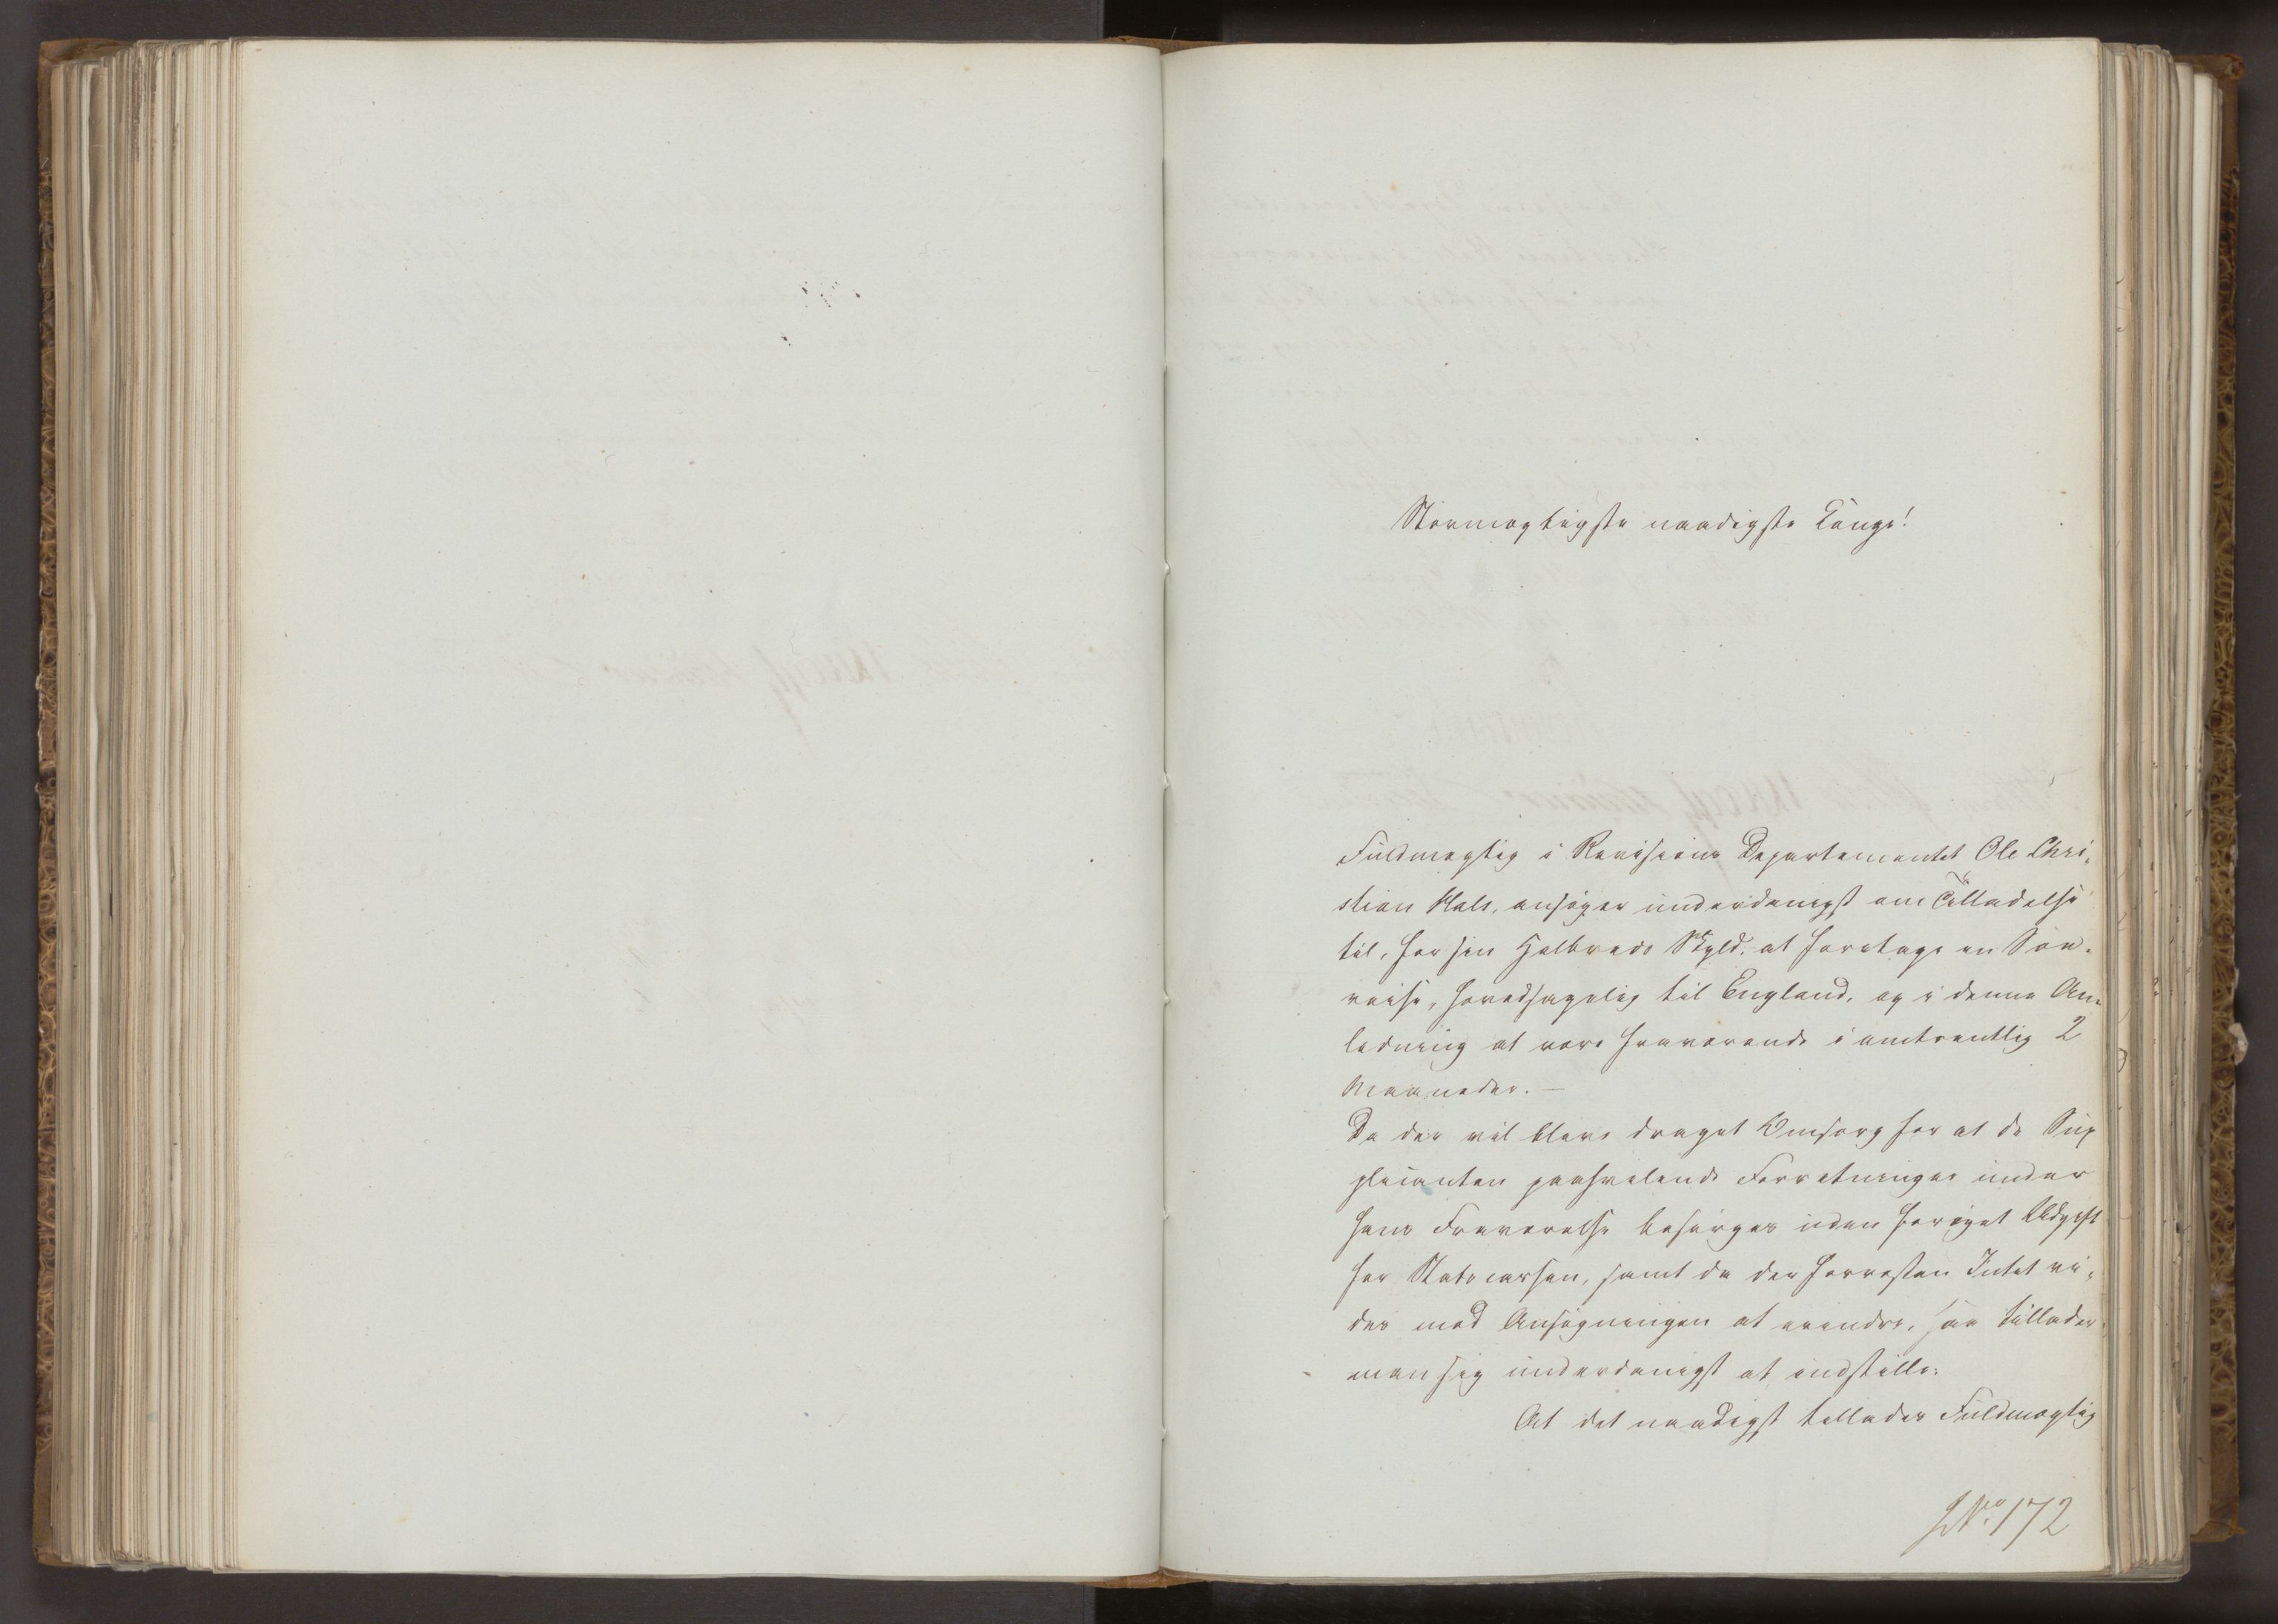 Stormægtigste naadigste Konge!
Fuldmægtig i Revisions Departementet Ole Chri-
stian Hals, ansøger underdanigst om Tilladelse
til, for sin Helbreds Skyld, at foretage en Søe-
reise, hovedsagelig til England, og i denne An-
ledning at være fraværende i omtrentlig 2
Maaneder. —
Da der vil blive draget Omsorg for at de Sup
plicanten paahvilende Forretninger under
hans Fraværelse besørges uden forøget Udgift
for Statscassen, samt da der forresten Intet vi-
des mod Ansøgningen at erindre, saa tillader
man sig underdanigst at indstille:
At det naadigst tillades Fuldmægtig
No. 172